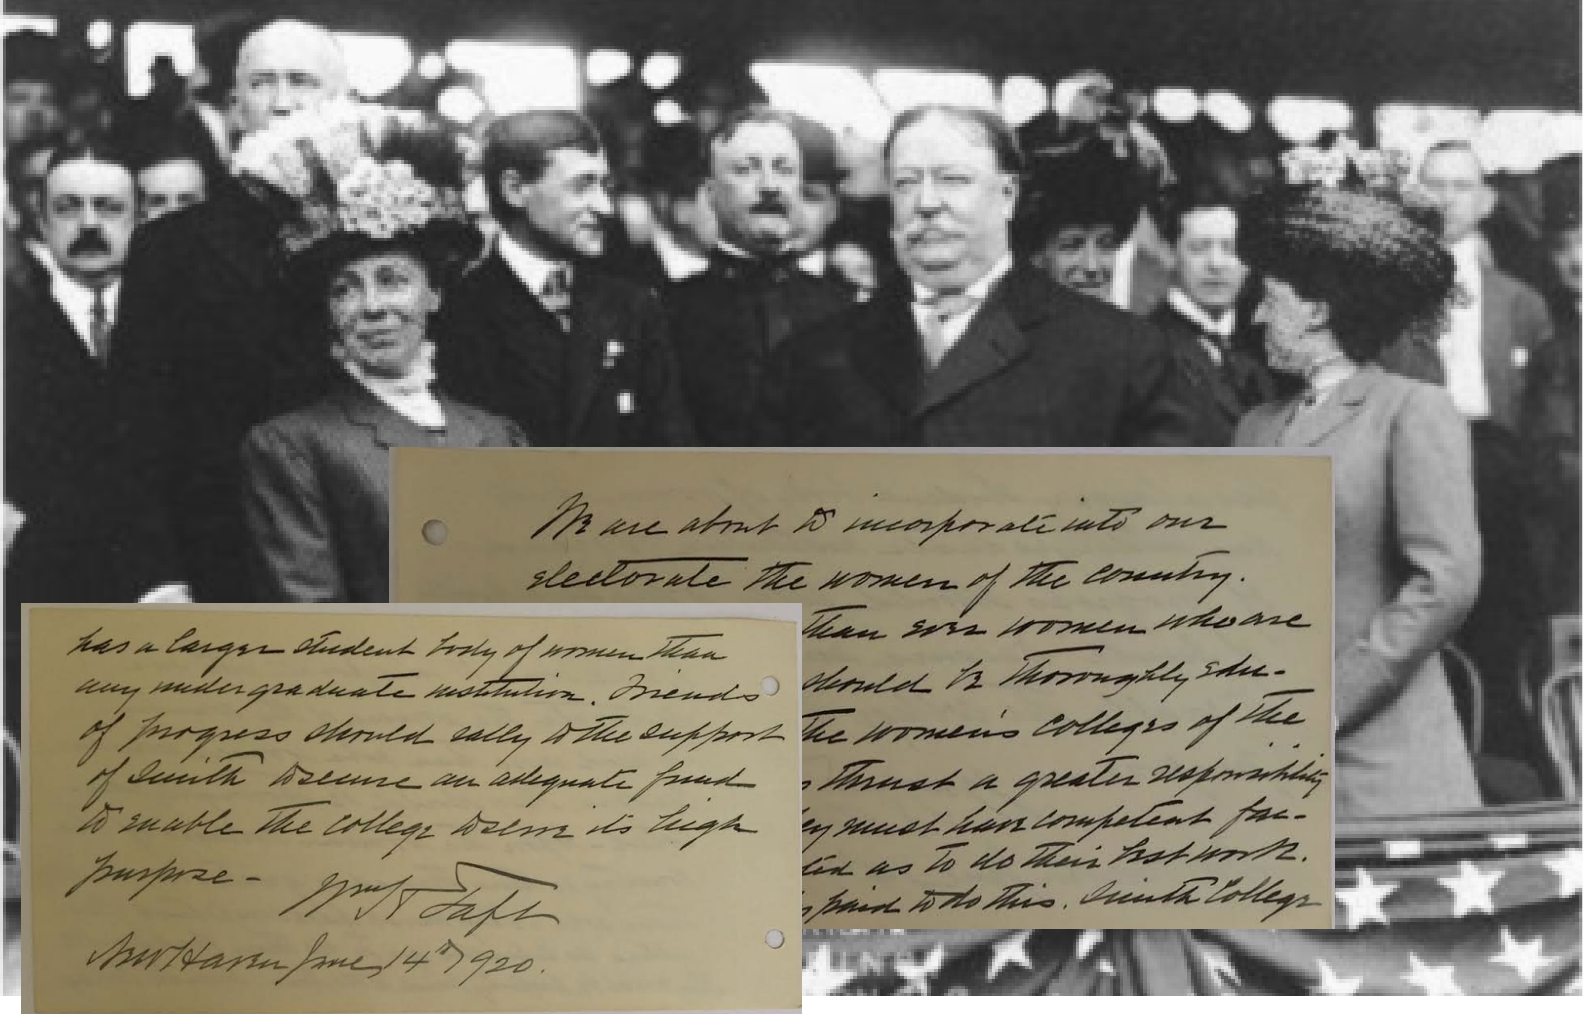 We are about to incorporate into our
electorate the women of the country.
than ever women who are
should be thoroughly edu-
the women's colleges of the
thrust a greater responsibility
must have competent fac-
as to do their best work.
paid to do this. Smith College
has a larger student body of women than
any undergraduate institution. Friends
of progress should rally to the support
of Smith to secure an adequate fund
to enable the college to serve its high
purpose -
Wm H Taft
New Haven June 14th 1920.